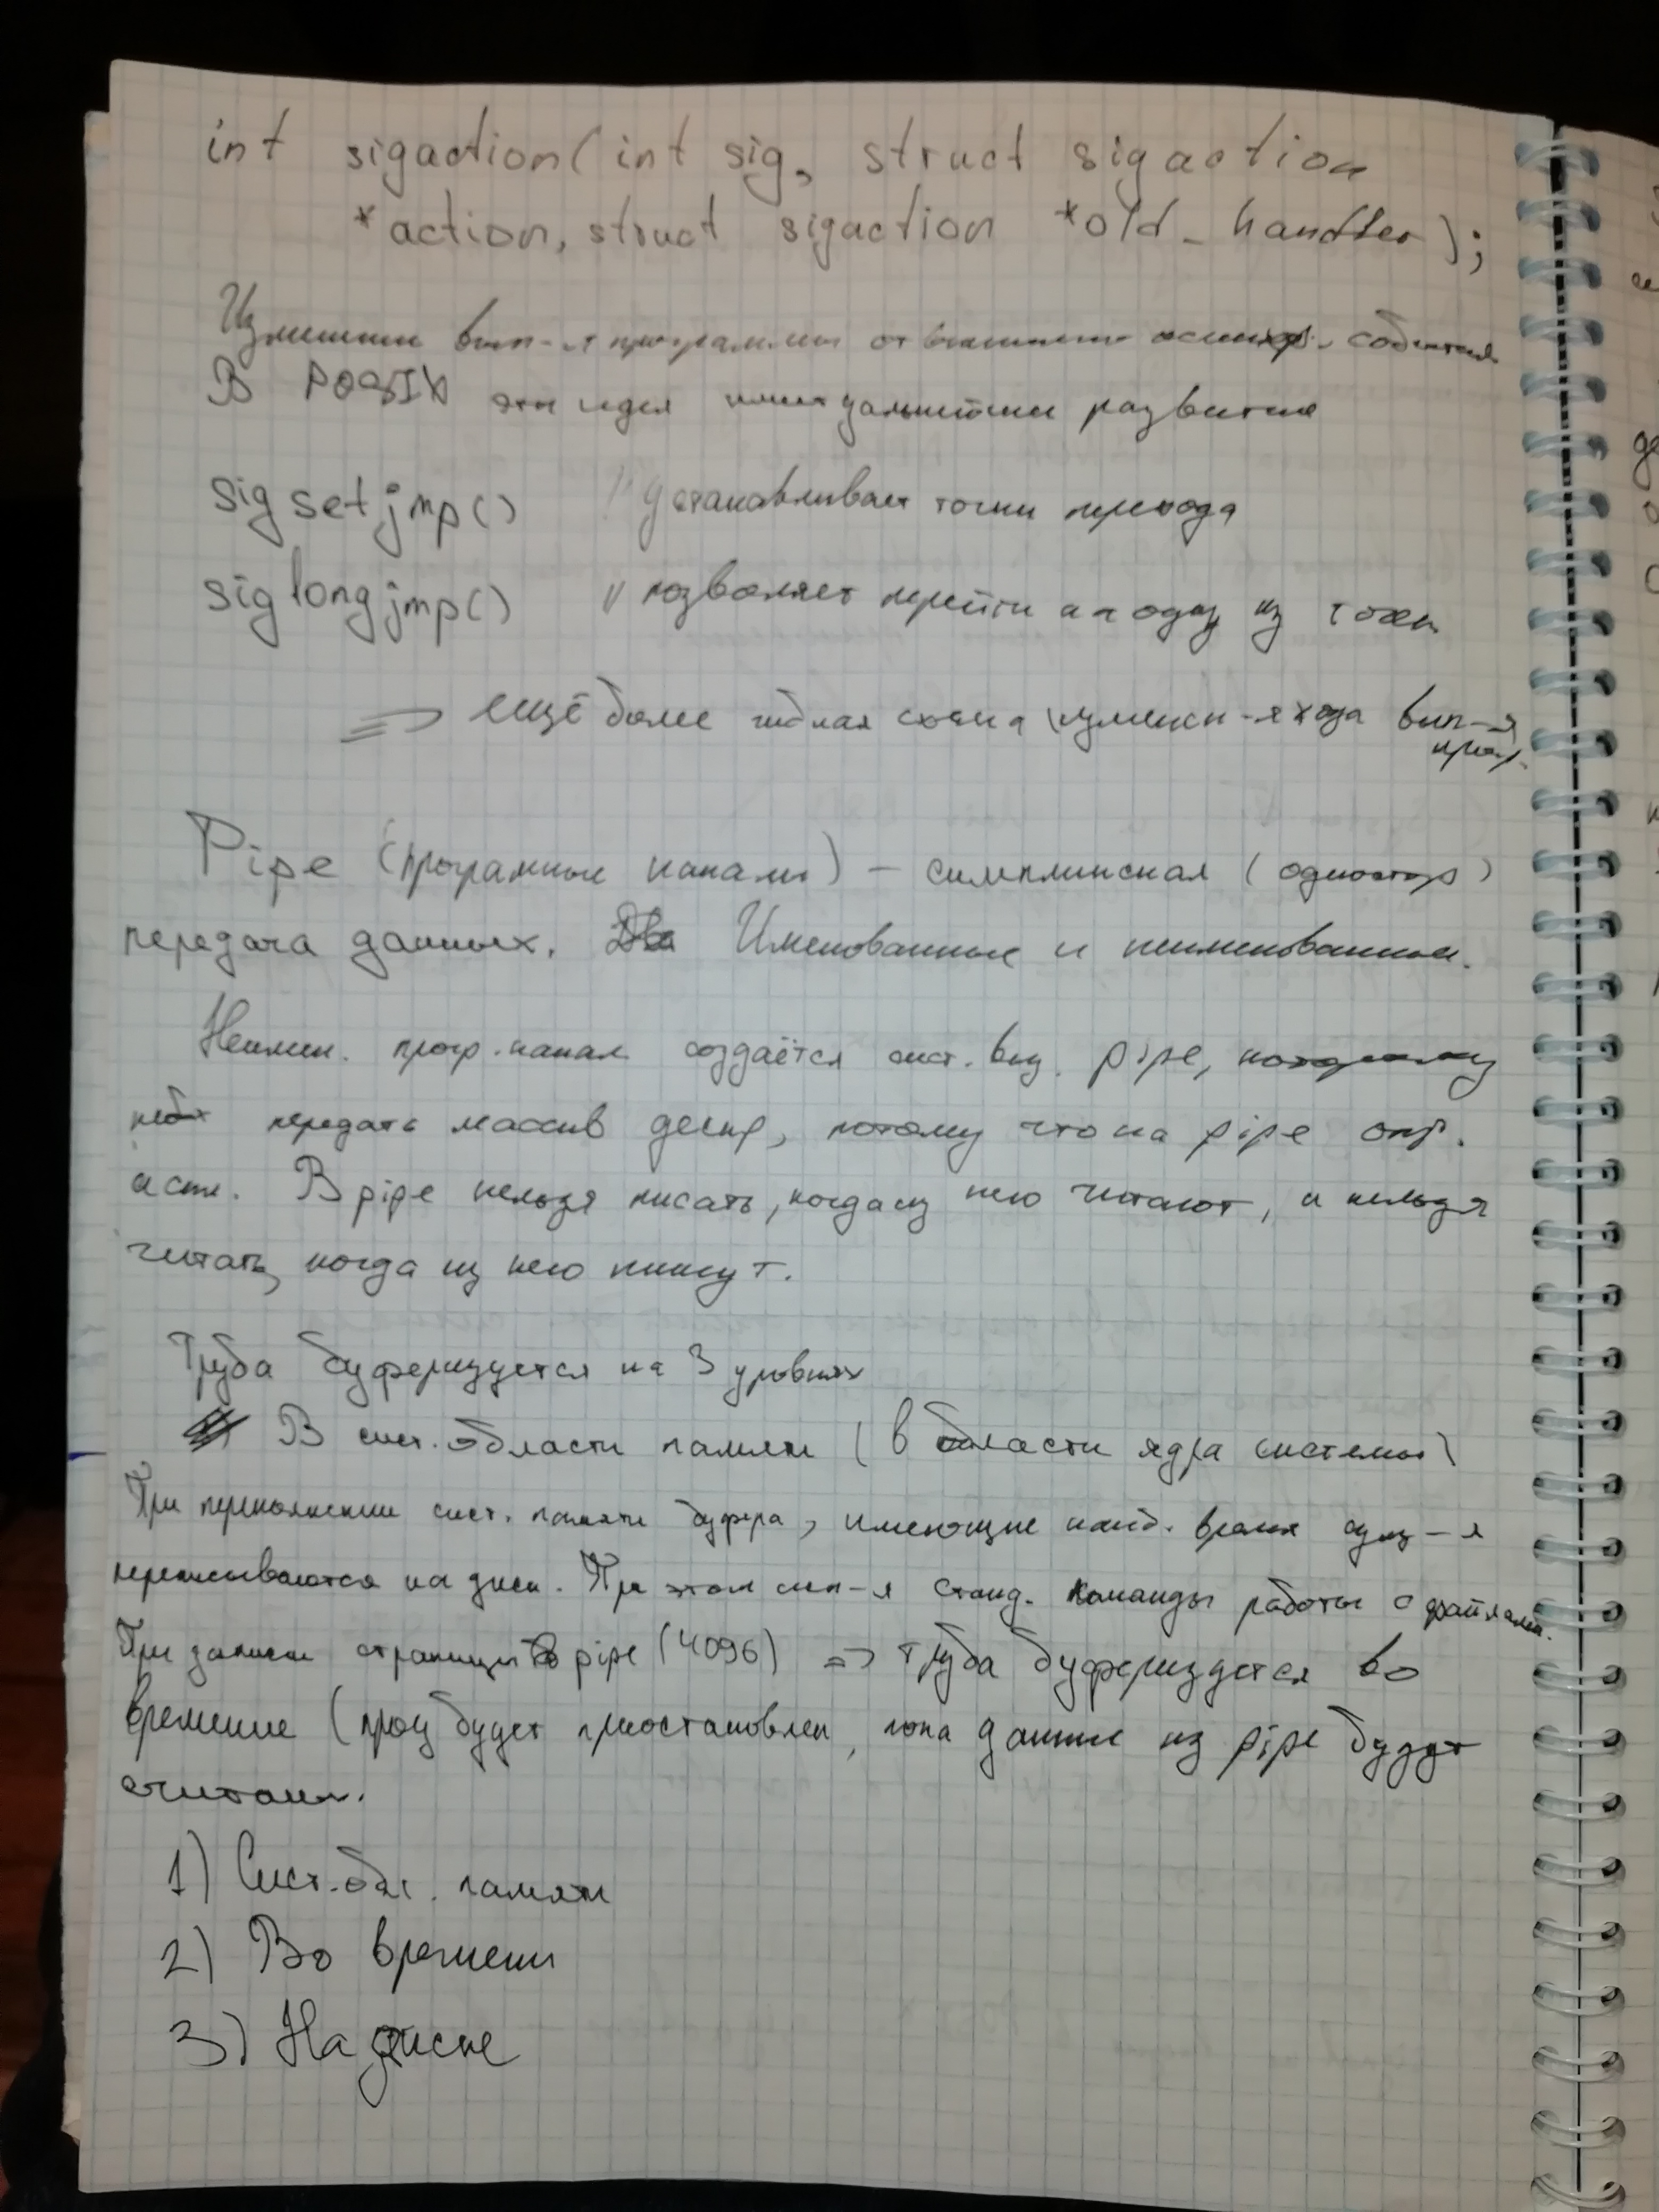 int sigaction(int sig, struct sigaction
*action, struct sigaction *old_handler);
вып-я программы от асинхр. события
В POSIX эта идея имеет дальнейшее развитие
sigsetjmp() // устанавливает точки перехода
siglongjmp() // позволяет перейти на одну из точек
=> ещё более гибкая схема изменен-я хода вып-я
прогр.
Pipe (програмные каналы) – симплексная (одностор)
передача данных. Именованные и неименованные.
Неимен. прогр. канал создаётся сист. выз. pipe, которому
передать массив дескр, потому что на pipe опр.
В pipe нельзя писать, когда из него читают, и нельзя
читать, когда из него пишут.
Труба буферизуется на 3 уровнях
В сист. области памяти (в области ядра системы)
При переполнении сист. памяти буфера, имеющие наиб. время сущ-я
переписываются на диск. При этом исп-я станд. команды работы с файлами.
При записи страницы в pipe (4096) => труба буферизуется во
времение (проц будет приостановлен, пока данные из pipe будут
считаны.
1) Сист. обл. памяти
2) Во времени
3) На диске